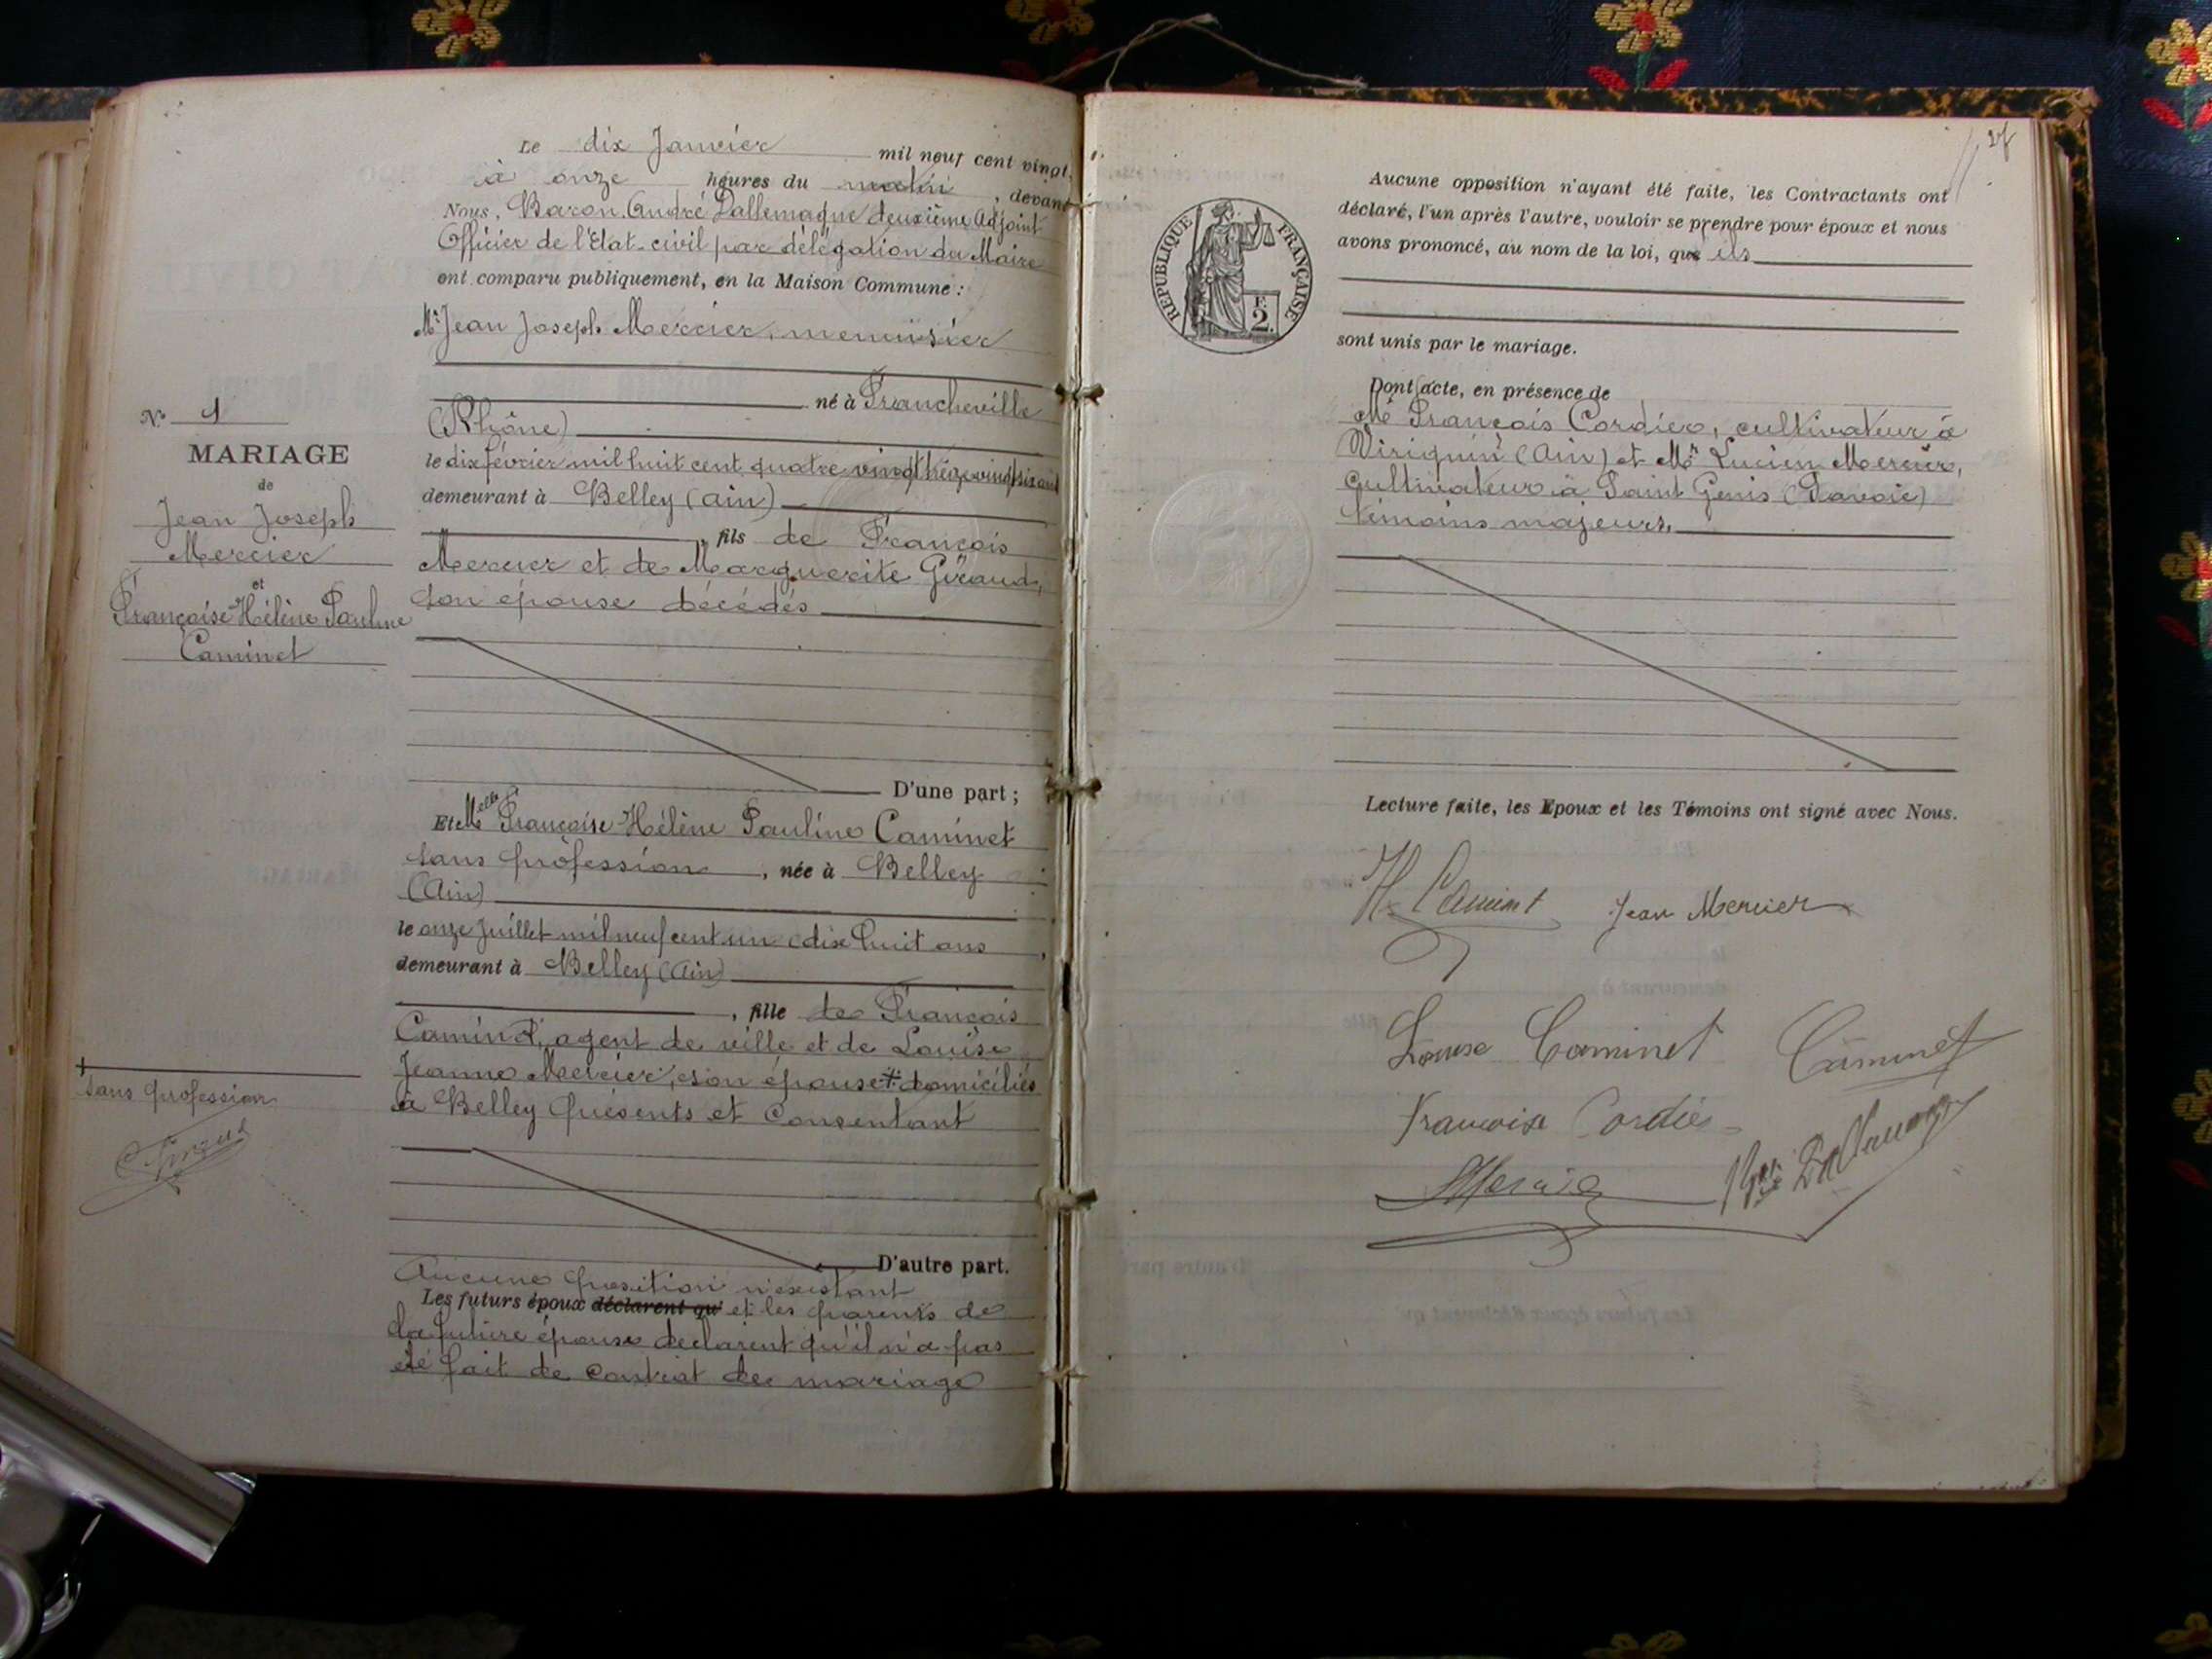 Le dix Janvier mil neuf cent vingt,
à onze heures du matin, devant
Nous, Baron André Dallemagne deuxième Adjoint
Officier de l'Etat-civil par délégation du Maire
ont comparu publiquement, en la Maison Commune :
Mr Jean Joseph Mercier, menuisier
né à Francheville
(Rhône)
le dix février mil huit cent quatre vingt treize vingt six ans
demeurant à Belley (ain)
, fils de François
Mercier et de Marguerite Giraud,
son épouse décédés
D'une part ;
Et Melle Françoise Hélène Pauline Caminet
sans profession, née à Belley
(Ain)
le onze Juillet mil neuf cent un dix huit ans,
demeurant à Belley (Ain)
, fille de François
Caminet, agent de ville et de Louise
Jeanne Mercier, son épouse + domiciliés
à Belley présents et consentant
D'autre part.
Aucune opposition n'existant
Les futurs époux déclarent qu' et les parents de
la future épouse declarent qu'il n'a pas
été fait de contrat de mariage
No 1
MARIAGE
de
Jean Joseph
Mercier
et
Françoise Hélène Pauline
Caminet
+
sans profession
27
REPUBLIQUE FRANÇAISE
F.
2.
Aucune opposition n'ayant été faite, les Contractants ont
déclaré, l'un après l'autre, vouloir se prendre pour époux et nous
avons prononcé, au nom de la loi, que ils
sont unis par le mariage.
Dont acte, en présence de
Mr François Cordier, cultivateur à
Virignin (Ain) et Mr Lucien Mercier,
cultivateur à Saint Genis (Savoie)
témoins majeurs.
Lecture faite, les Epoux et les Témoins ont signé avec Nous.
H. Caminet Jean Mercier
Louise Caminet Caminet
Francois Cordier
Mercier Bon Dallemagne